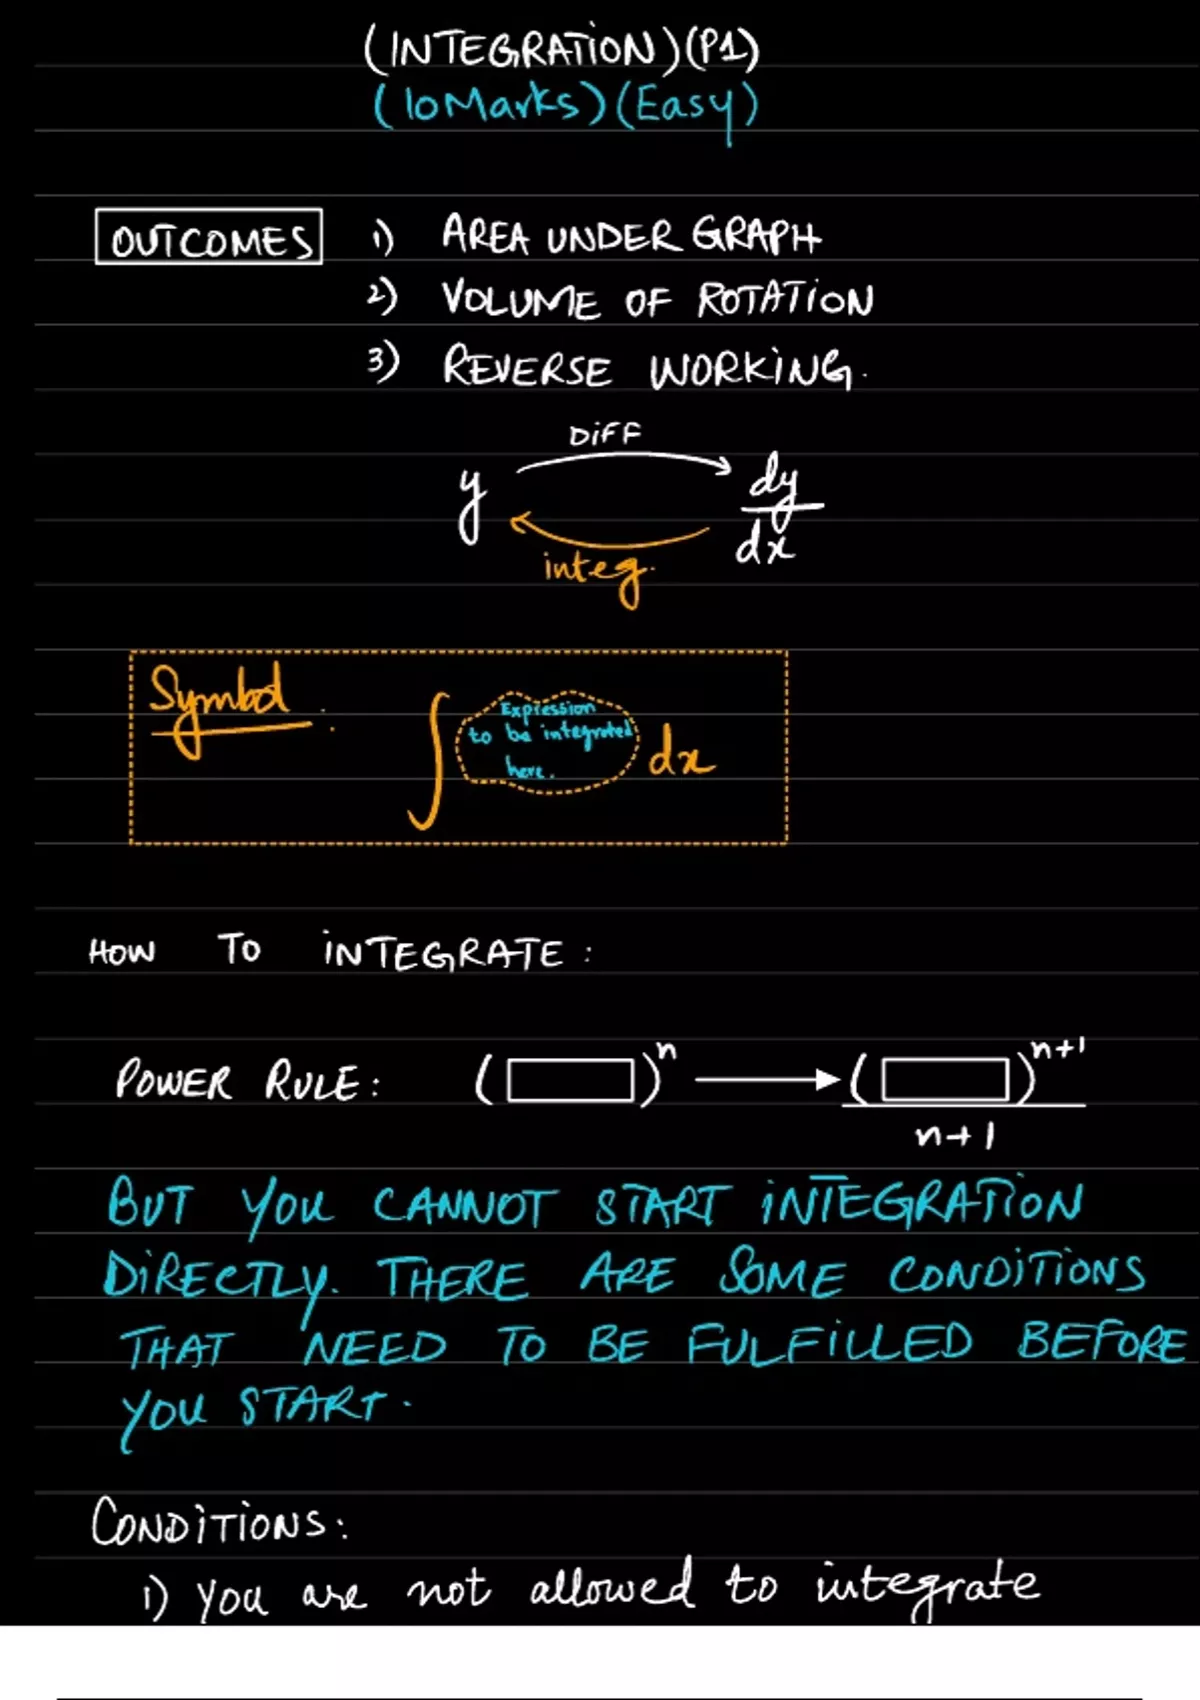 (INTEGRATION)(P1)
(10Marks)(Easy)
OUTCOMES 1) AREA UNDER GRAPH
2) VOLUME OF ROTATION
3) REVERSE WORKING.
DIFF
y dy/dx
integ.
Symbol :
∫ Expression to be integrated here. dx
HOW TO INTEGRATE :
POWER RULE : ( )^n ⟶ ( )^n+1 / n+1
BUT YOU CANNOT START INTEGRATION
DIRECTLY. THERE ARE SOME CONDITIONS
THAT NEED TO BE FULFILLED BEFORE
YOU START.
CONDITIONS :
1) You are not allowed to integrate